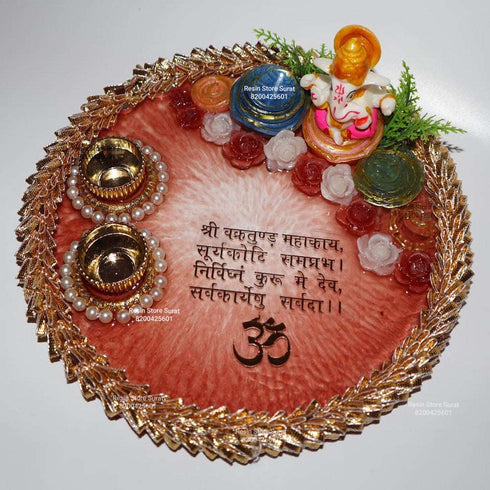 Resin Store Surat
8200425601
Resin Store Surat
8200425601
श्री वक्रतुण्ड महाकाय,
सूर्यकोटि समप्रभ।
निर्विघ्नं कुरू मे देव,
सर्वकार्येषु सर्वदा।।
ॐ
Resin Store Surat
8200425601
Resin Store Surat
8200425601
Resin Store Surat
8200425601